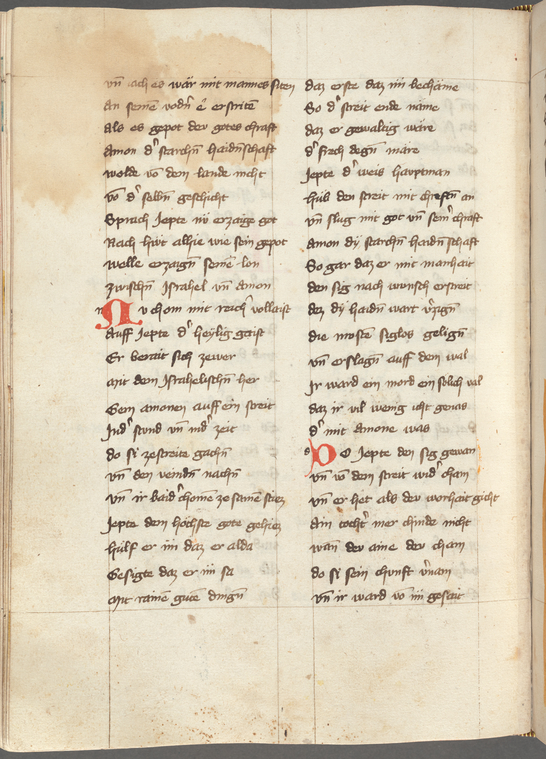 vn̄ ach es wär mit mannes siten
An seinē vodn̄ ē erstritē
Als es gepot der gotes chraft
Amon d' starchn̄ haidn̄schaft
wolde vō dem lande nicht
vō d' selbn̄ geschicht
Sprach Jepte nū erzaige got
Nach hiut alhie wie sein gepot
welle erzaign̄ seinē lon
zwischn̄ Israhel vn̄ Amon
Nv chom mit reich' volleist
Auff Jepte d' heylig gaist
Er berait sich zewer
Mit dem Israhelischn̄ her
Gein Amonen auff ein streit
Ind' stund vn̄ ind' zeit
do si zestreite gachn̄
vn̄ den veindn̄ nachn̄
vn̄ ir baid' chome zesamē stiez
Jepte dem hochste gote gehiez
hulf er im daz er alda
Gesigte daz er im sa
Mit rainē gutē dingn̄
daz erste daz im bechäme
So d' streit ende näme
daz er gewaltig wäre
d' frech degn̄ märe
Jepte d' weis hauptman
hub den streit mit chreftn̄ an
vn̄ slug mit got vn̄ sein' chraft
Amon dy starchn̄ haidn̄schaft
So gar daz er mit manhait
den sig nach wunsch erstreit
dez dy haidn̄ wart v'zign̄
die mostē siglos gelign̄
vn̄ erslagn̄ auff dem wal
Ir ward ein mord ein solich val
daz ir vil wenig icht genas
d' mit Amone was
DO Jepte den sig gewan
vn̄ vō dem streit wid' cham
vn̄ er het als der worhait gicht
Ain tocht' mer chinde nicht
wan der aine der cham
do si sein chunft v'nam
vn̄ ir ward vō im gesait